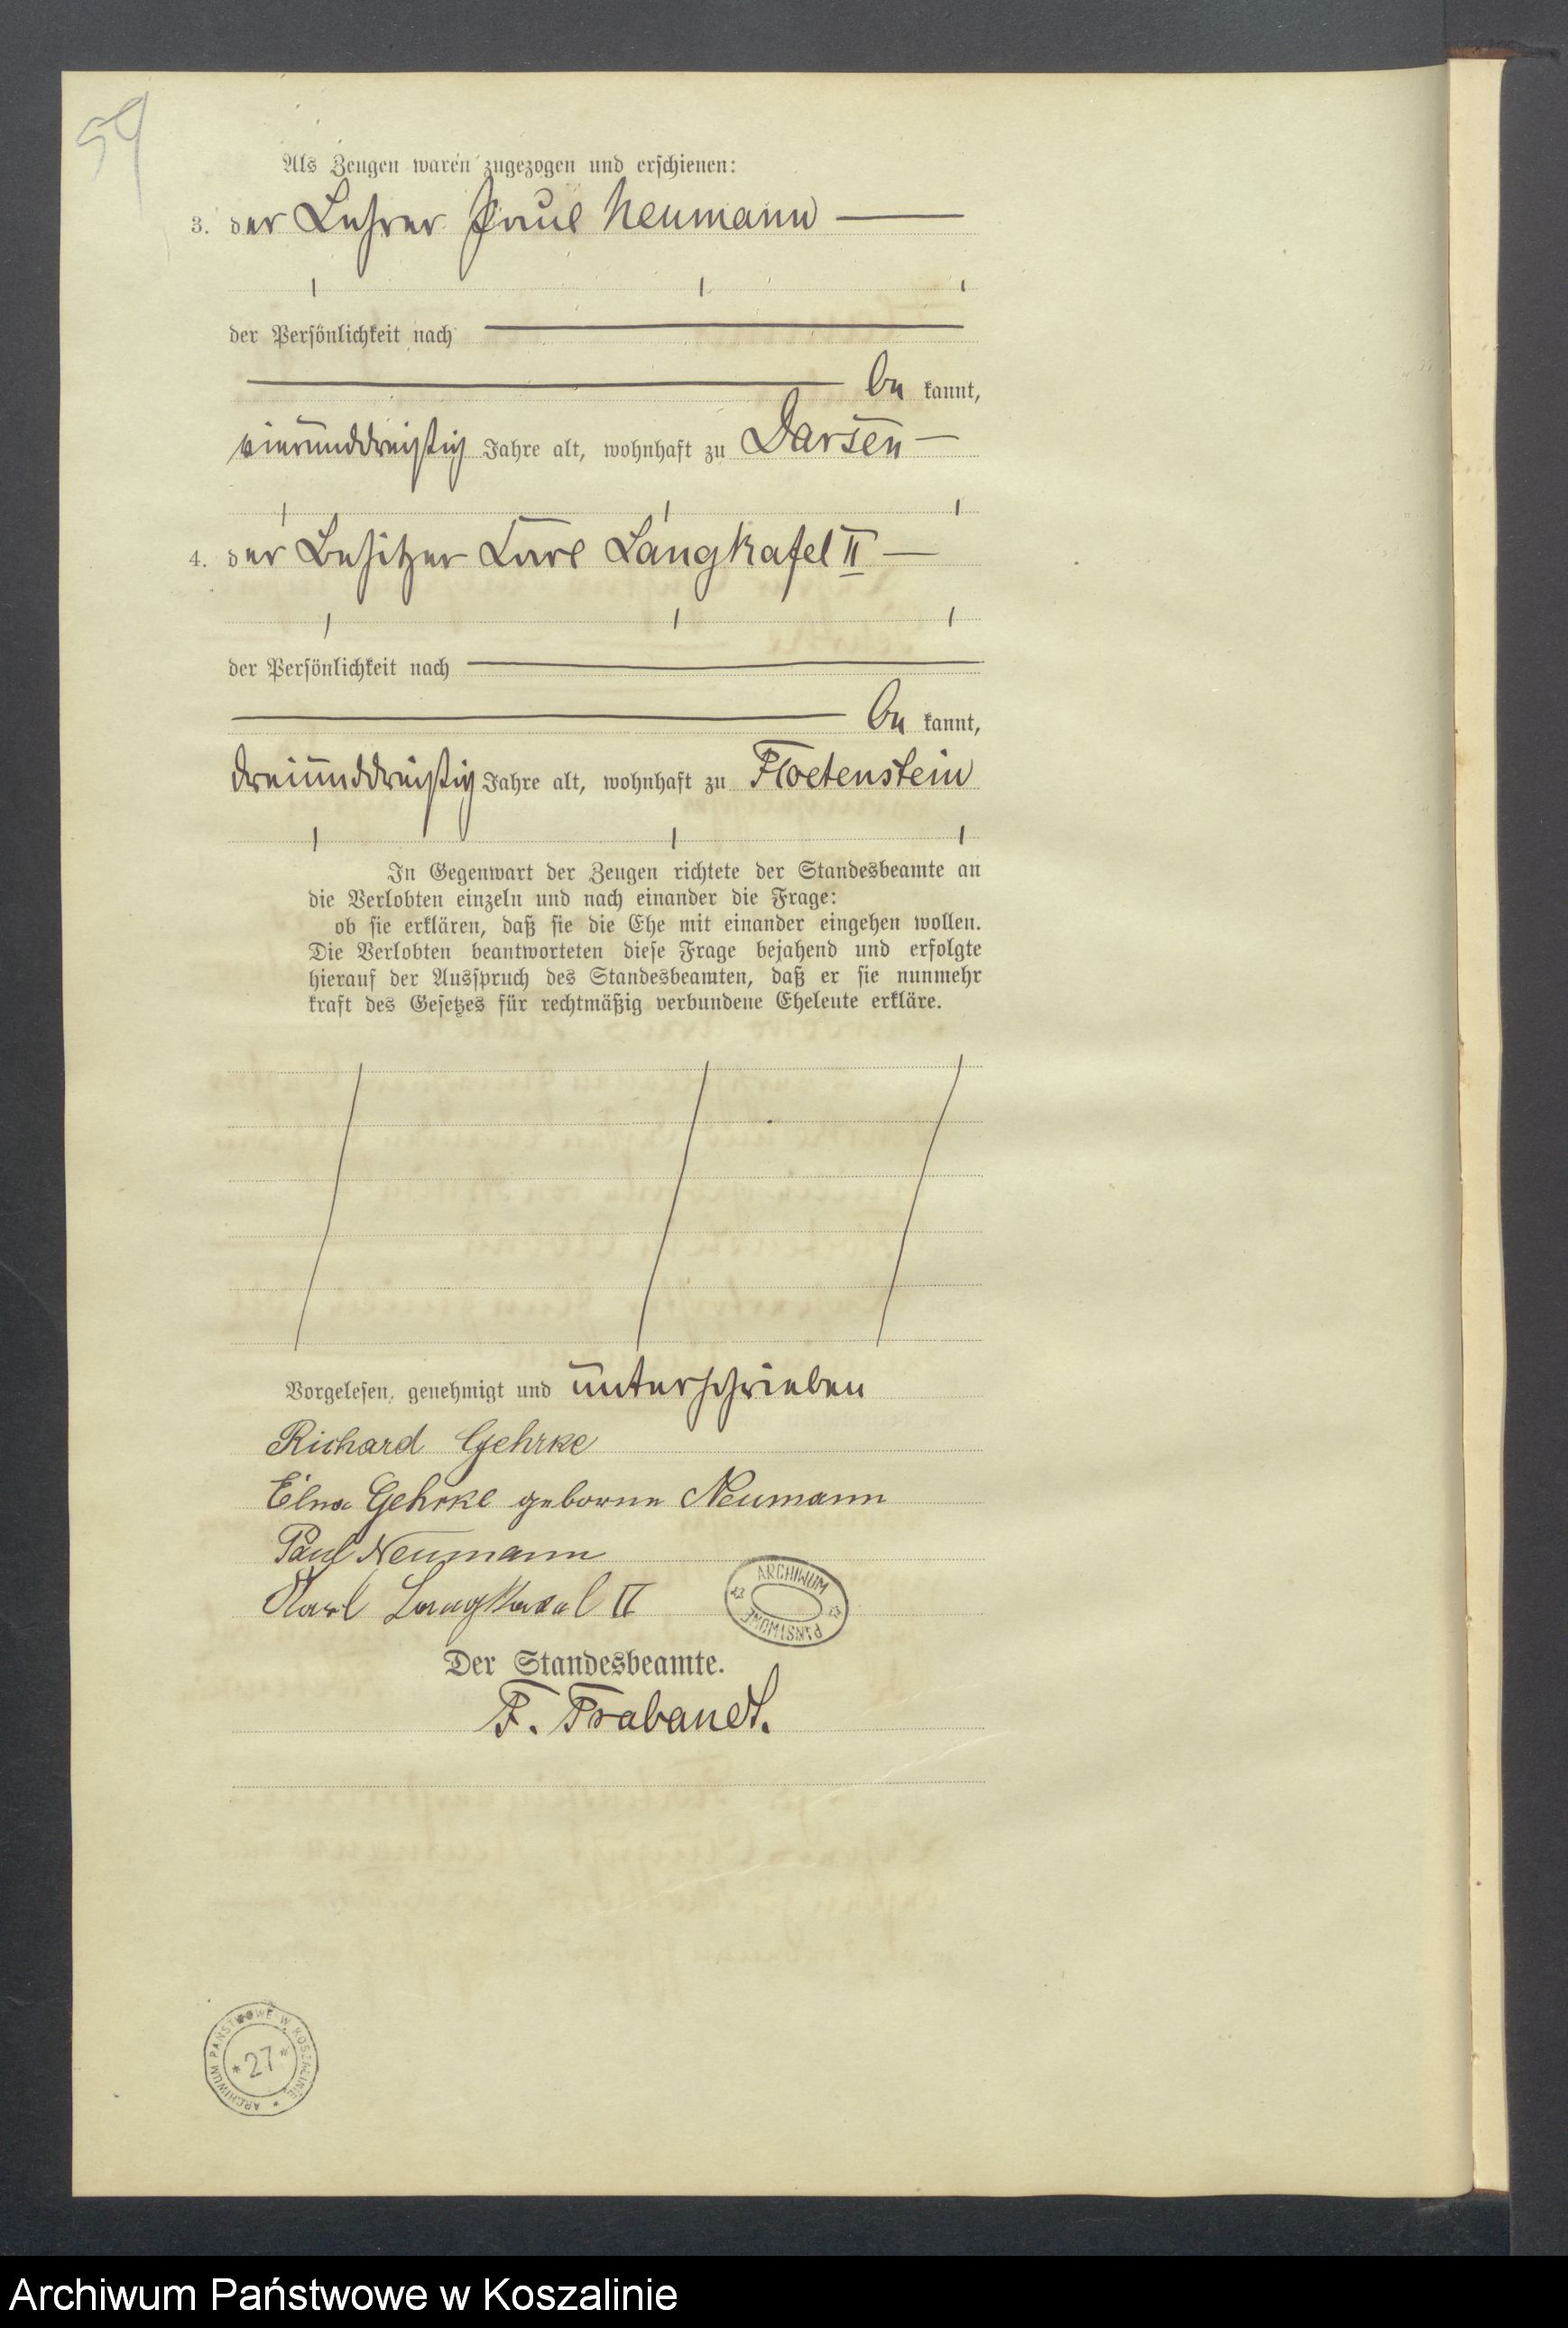 59
Als Zeugen waren zugezogen und erschienen:
3. der Lehrer Paul Neumann
der Persönlichkeit nach
be kannt,
vierunddreißig Jahre alt, wohnhaft zu Darsen
4. der Besitzer Carl Langkafel II
der Persönlichkeit nach
be kannt,
dreiunddreißig Jahre alt, wohnhaft zu Floetenstein
In Gegenwart der Zeugen richtete der Standesbeamte an
die Verlobten einzeln und nach einander die Frage:
ob sie erklären, daß sie die Ehe mit einander eingehen wollen.
Die Verlobten beantworteten diese Frage bejahend und erfolgte
hierauf der Ausspruch des Standesbeamten, daß er sie nunmehr
kraft des Gesetzes für rechtmäßig verbundene Eheleute erkläre.
Vorgelesen, genehmigt und unterschrieben
Richard Gehrke
Gehrke geborene Neumann
Paul Neumann
Karl Langkafel II
ARCHIWUM PAŃSTWOWE
Der Standesbeamte.
F. Brabandt.
ARCHIWUM PAŃSTWOWE W KOSZALINIE
*27*
Archiwum Państwowe w Koszalinie